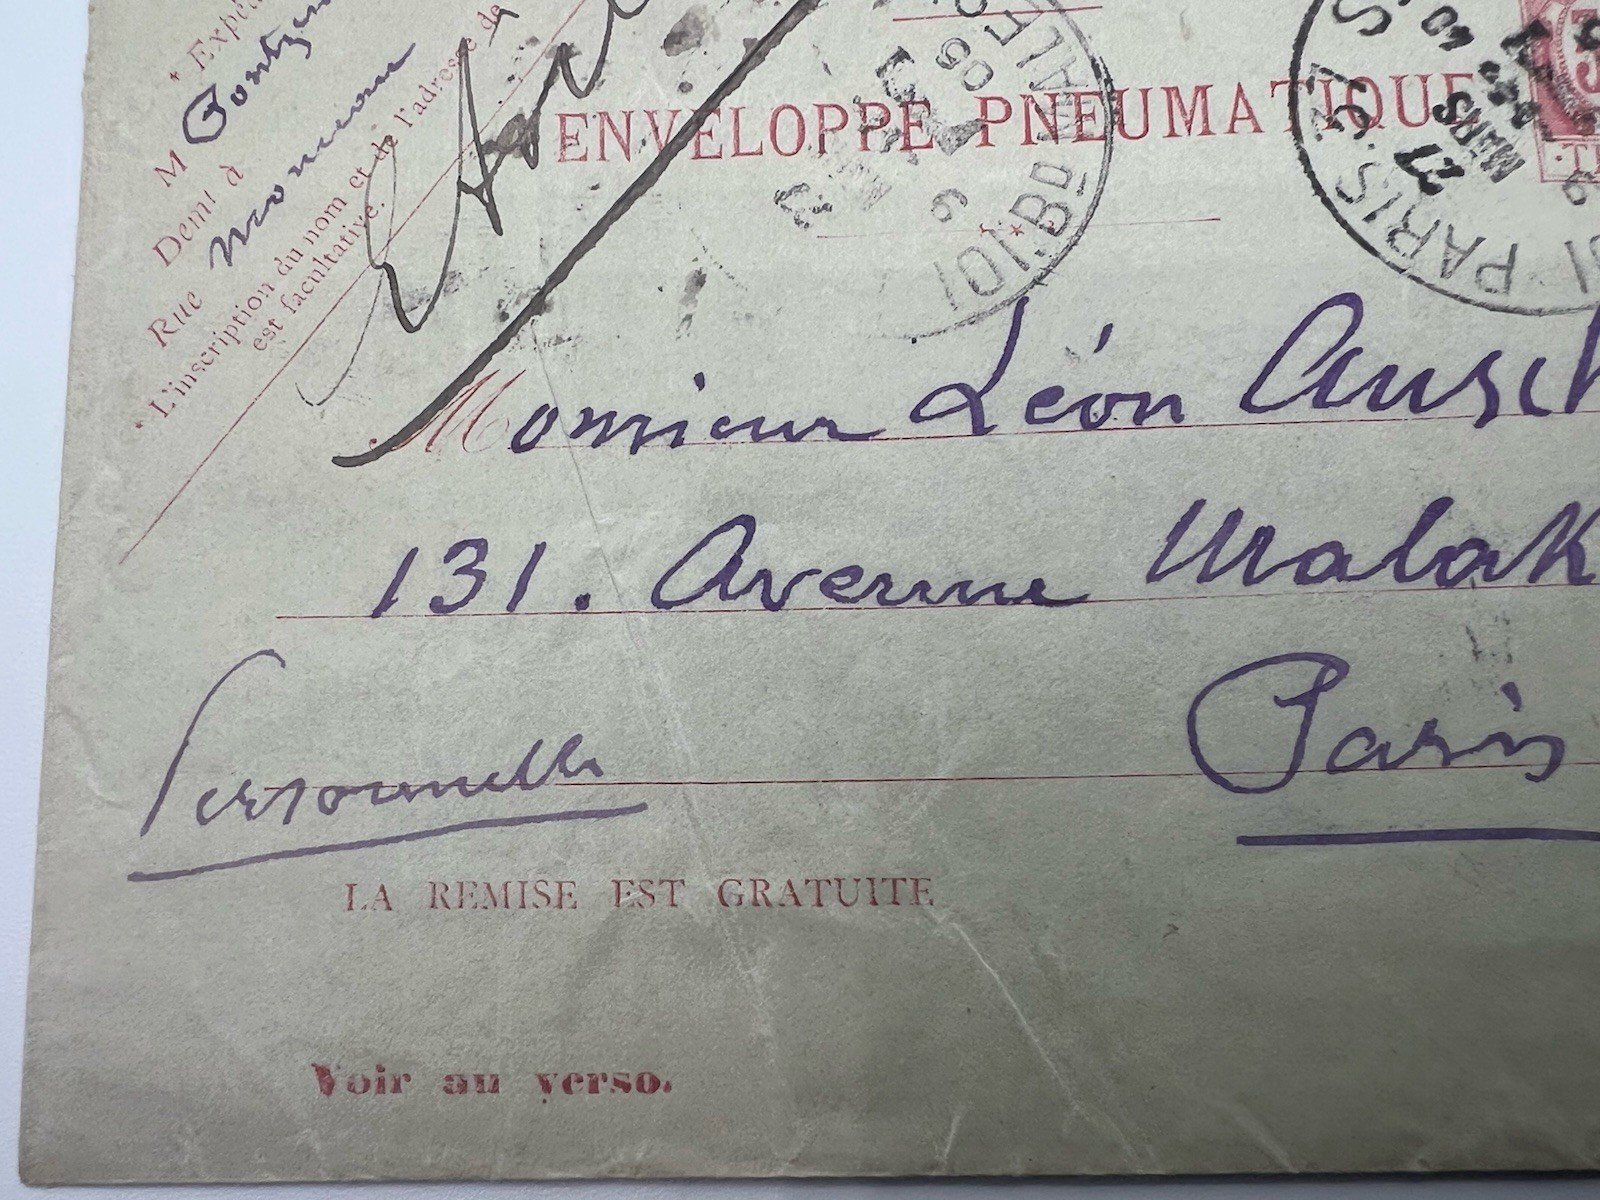 * Expé
M
Demt à
Rue
* L'inscription du nom et de l'adresse de
est facultative.
ENVELOPPE PNEUMATIQUE
101 BD
PARIS
MARS
Monsieur Léon Ausch
131. Avenue Malak
Paris
Personnelle
LA REMISE EST GRATUITE
Voir au verso.